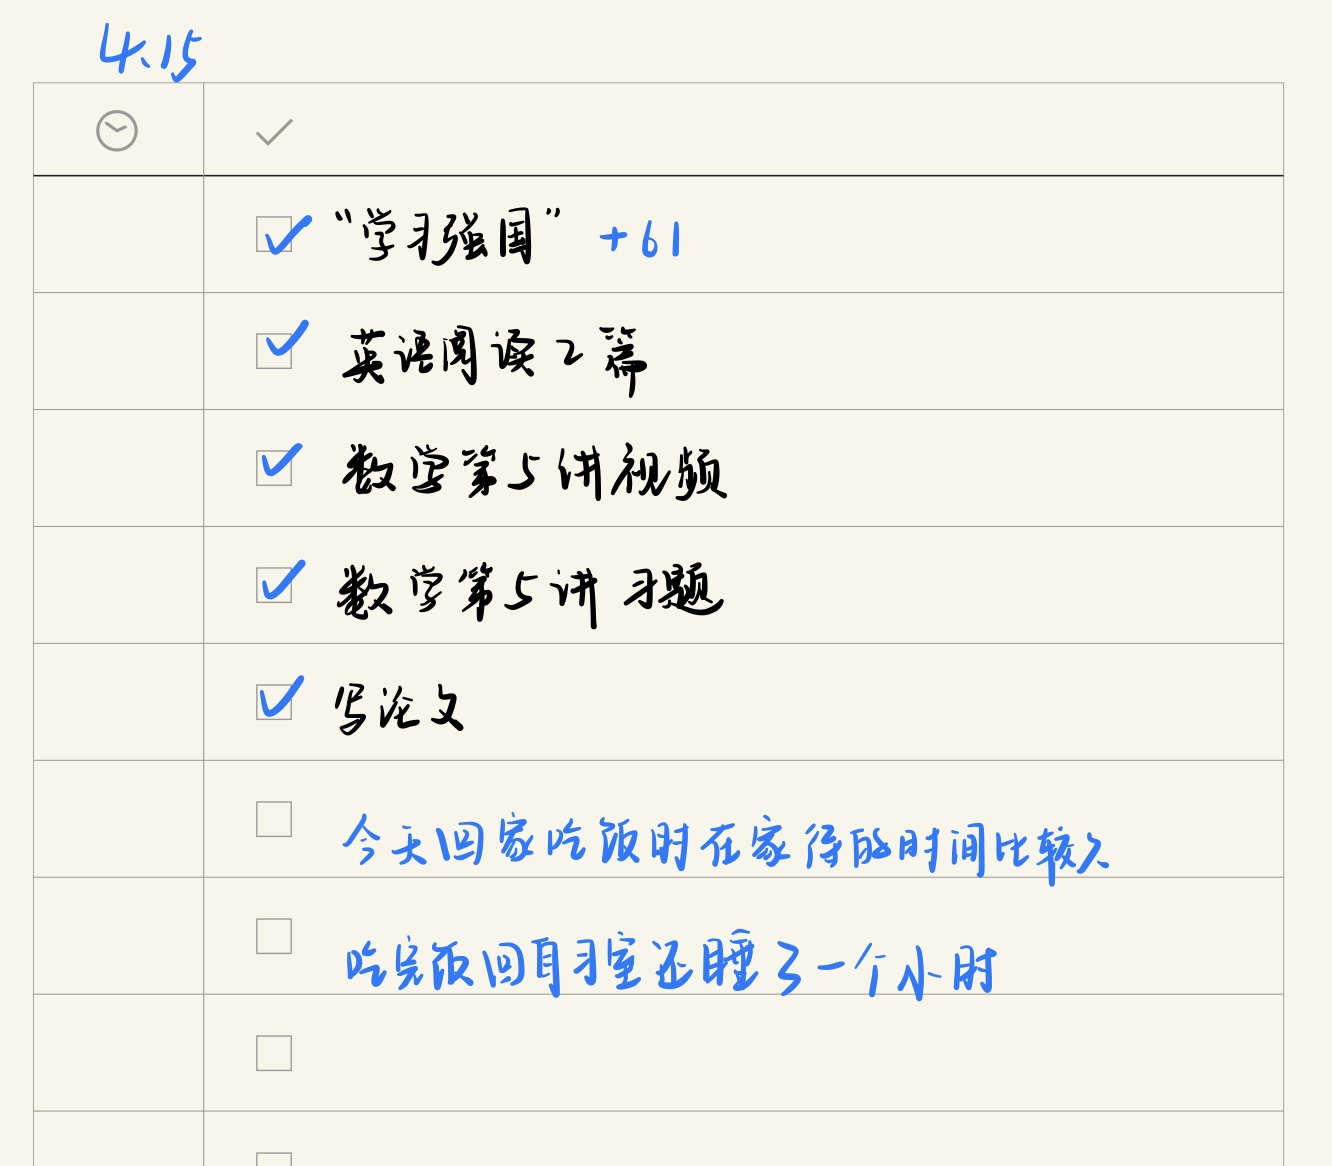 4.15
“学习强国” +61
英语阅读2篇
数学第5讲视频
数学第5讲习题
写论文
今天回家吃饭时在家待的时间比较久
吃完饭回自习室还睡了一个小时